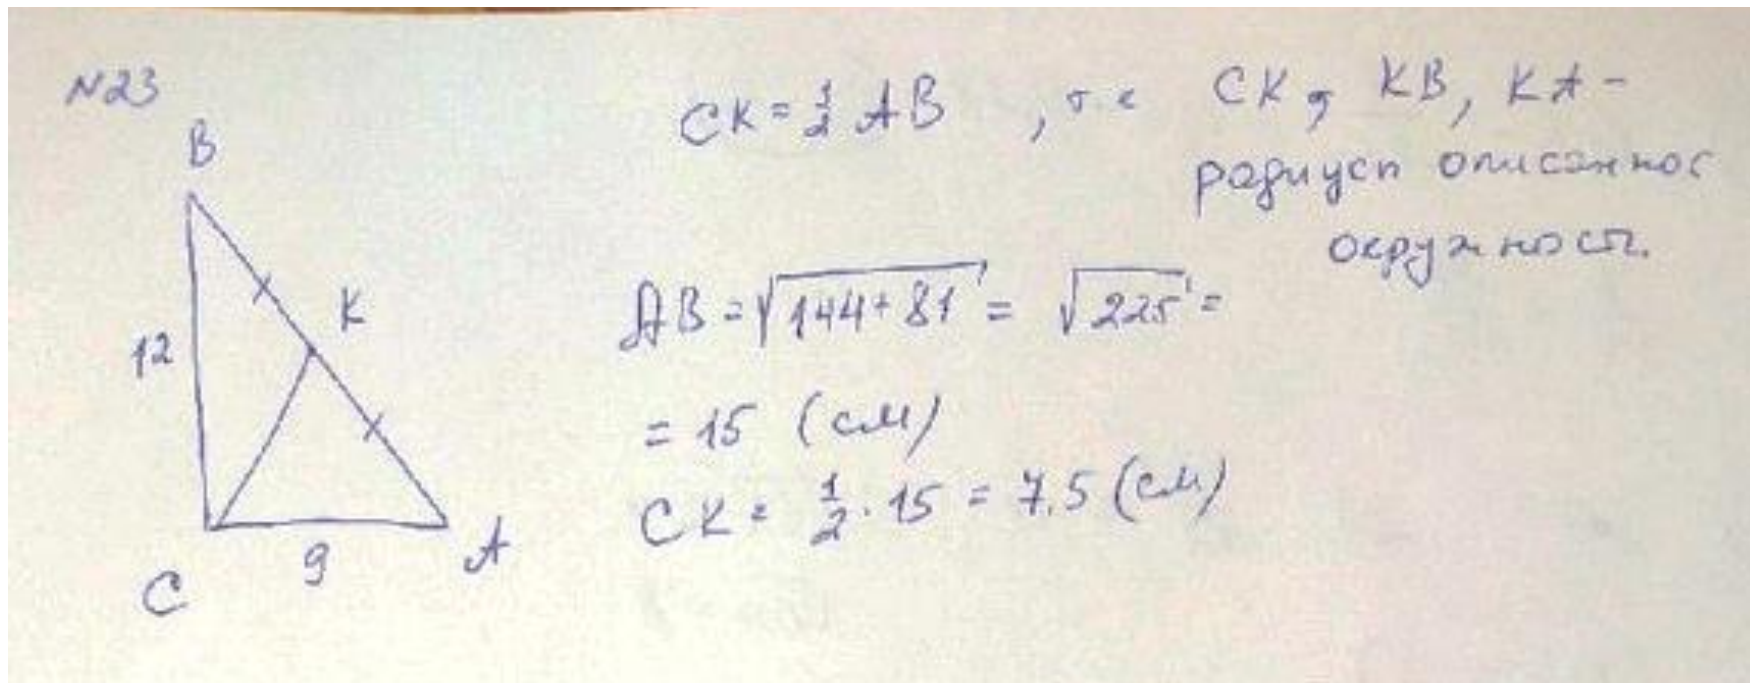 №23
CK = 1/2 AB , т.к CK, KB, KA -
радиусы описанной
окружности.
B
K
12
C
9
A
AB = √144+81 = √225 =
= 15 (см)
CK = 1/2 · 15 = 7,5 (см)